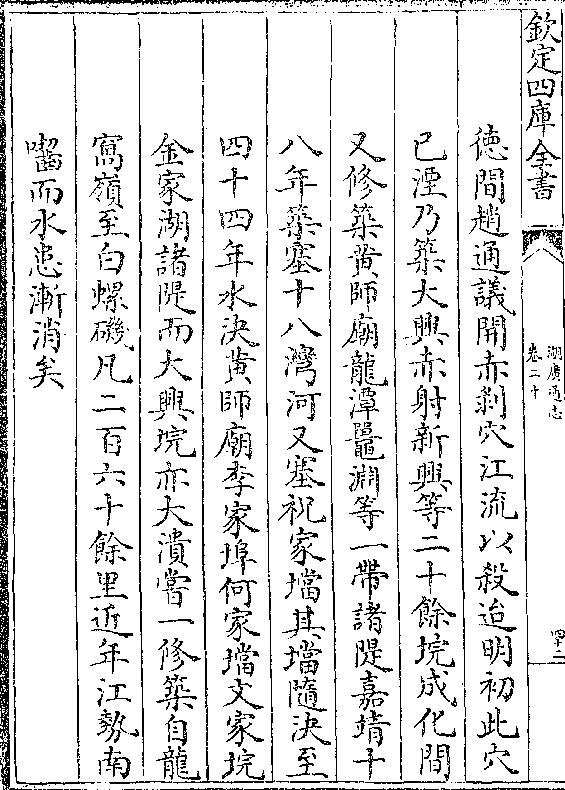 欽定四庫全書
湖廣通志
卷二十
四二
德間趙通議開赤剝穴江流以殺迨明初此穴
已湮乃築大興赤射新興等二十餘垸成化間
又修築黄師廟龍潭鼉淵等一帶諸隄嘉靖十
八年築塞十八灣河又塞祝家壋其壋隨決至
四十四年水決黄師廟李家埠何家壋文家垸
金家湖諸隄而大興垸亦大潰嘗一修築自龍
窩嶺至白螺磯凡二百六十餘里近年江勢南
囓而水患漸消矣